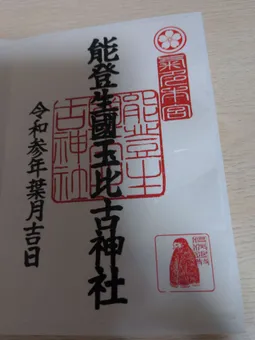 氣多本宮
能登生國玉比古神社
能登生
古神社
令和参年葉月吉日